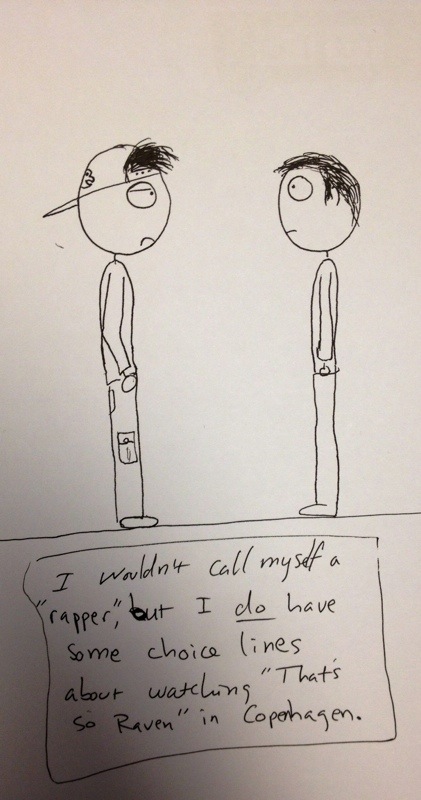 I wouldn't call myself a
"rapper", but I do have
some choice lines
about watching "That's
so Raven" in Copenhagen.